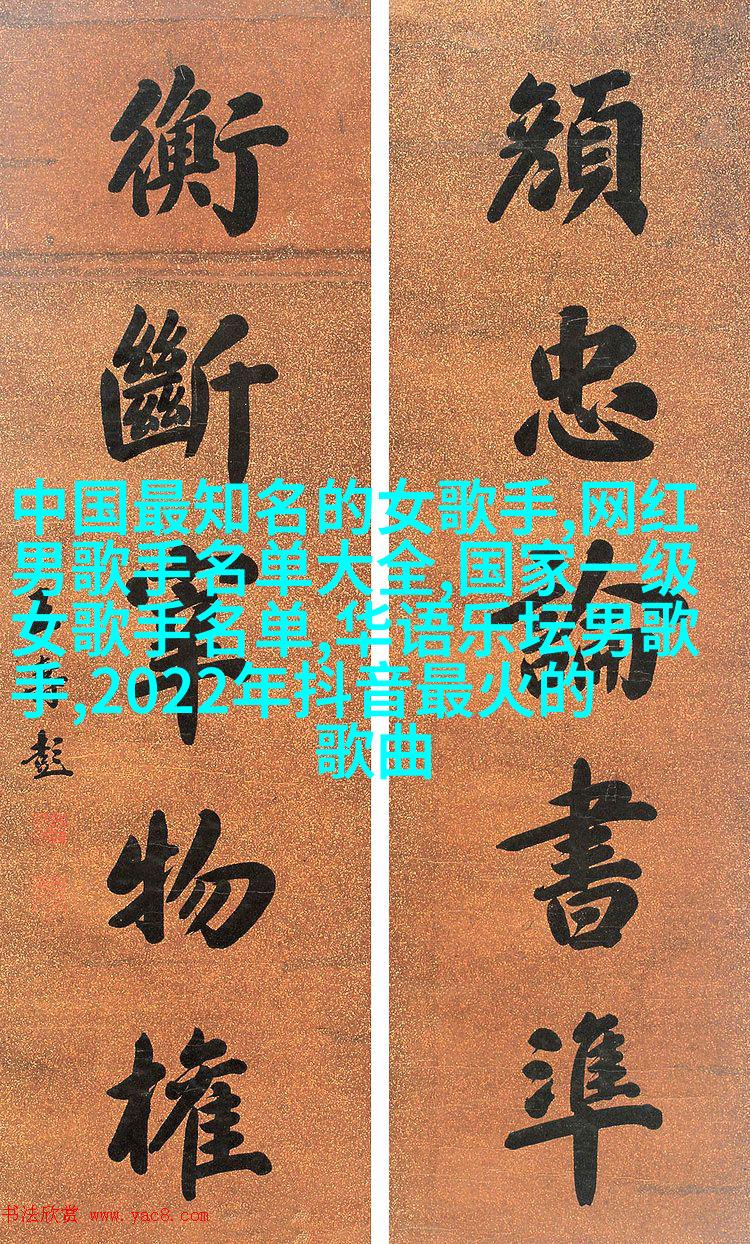 顔
忠
論
書
準
衡
斷
宰
物
權
壽彭
中国最知名的女歌手,网红
男歌手名单大全,国家一级
女歌手名单,华语乐坛男歌
手,2022年抖音最火的
歌曲
书法欣赏 www.yac8.com